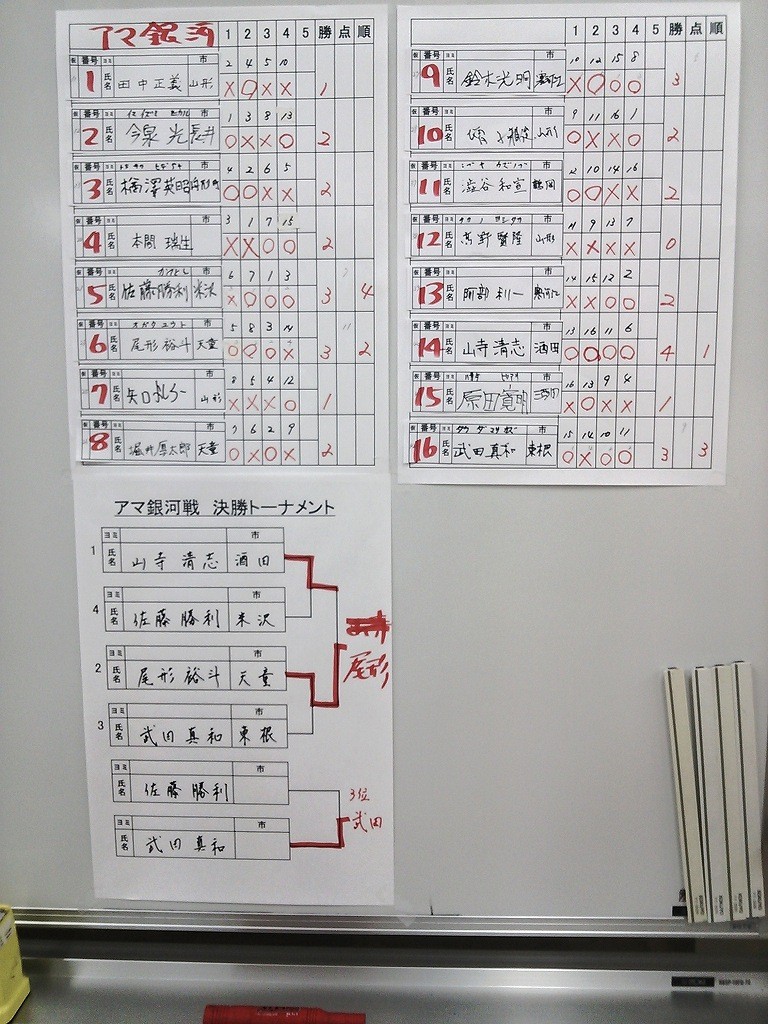 アマ銀河 1 2 3 4 5 勝 点 順
番号 氏名 市 2 4 5 10
1 田中正義 山形 X O X X 1
番号 市 1 3 8 13
2 氏名 今泉 光 長井 O X X O 2
番号 市 4 2 6 5
3 氏名 横澤英昭 O O X X 2
番号 市 3 1 7 15
4 氏名 本間 瑞生 X X O O 2
番号 市 6 7 1 3
5 氏名 佐藤勝利 米沢 X O O O 3 4
番号 オガタ ユウト 市 5 8 3 14
6 氏名 尾形裕斗 天童 O O O X 3 2
番号 市 8 5 4 12
7 氏名 山形 X X X O 1
番号 市 7 6 2 9
8 氏名 堀井厚太郎 天童 O X O X 2
1 2 3 4 5 勝 点 順
番号 市 10 12 15 8
9 氏名 X O O O 3
番号 市 9 11 16 1
10 氏名 山形 O X X O 2
番号 市 12 10 14 16
11 氏名 澁谷和宣 鶴岡 O O X X 2
番号 市 11 9 13 7
12 氏名 髙野賢隆 山形 X X X X 0
番号 市 14 15 12 2
13 氏名 阿部利一 X X O O 2
番号 市 13 16 11 6
14 氏名 山寺清志 酒田 O O O O 4 1
番号 市 16 13 9 4
15 氏名 X O X X 1
番号 市 15 14 10 11
16 氏名 武田真和 東根 O X O O 3 3
アマ銀河戦 決勝トーナメント
ヨミ 市
1 氏名 山寺 清志 酒田
ヨミ 市
4 氏名 佐藤 勝利 米沢
尾形
ヨミ 市
2 氏名 尾形 裕斗 天童
ヨミ 市
3 氏名 武田 真和 東根
ヨミ 市
氏名 佐藤 勝利
3位
武田
ヨミ 市
氏名 武田 真和